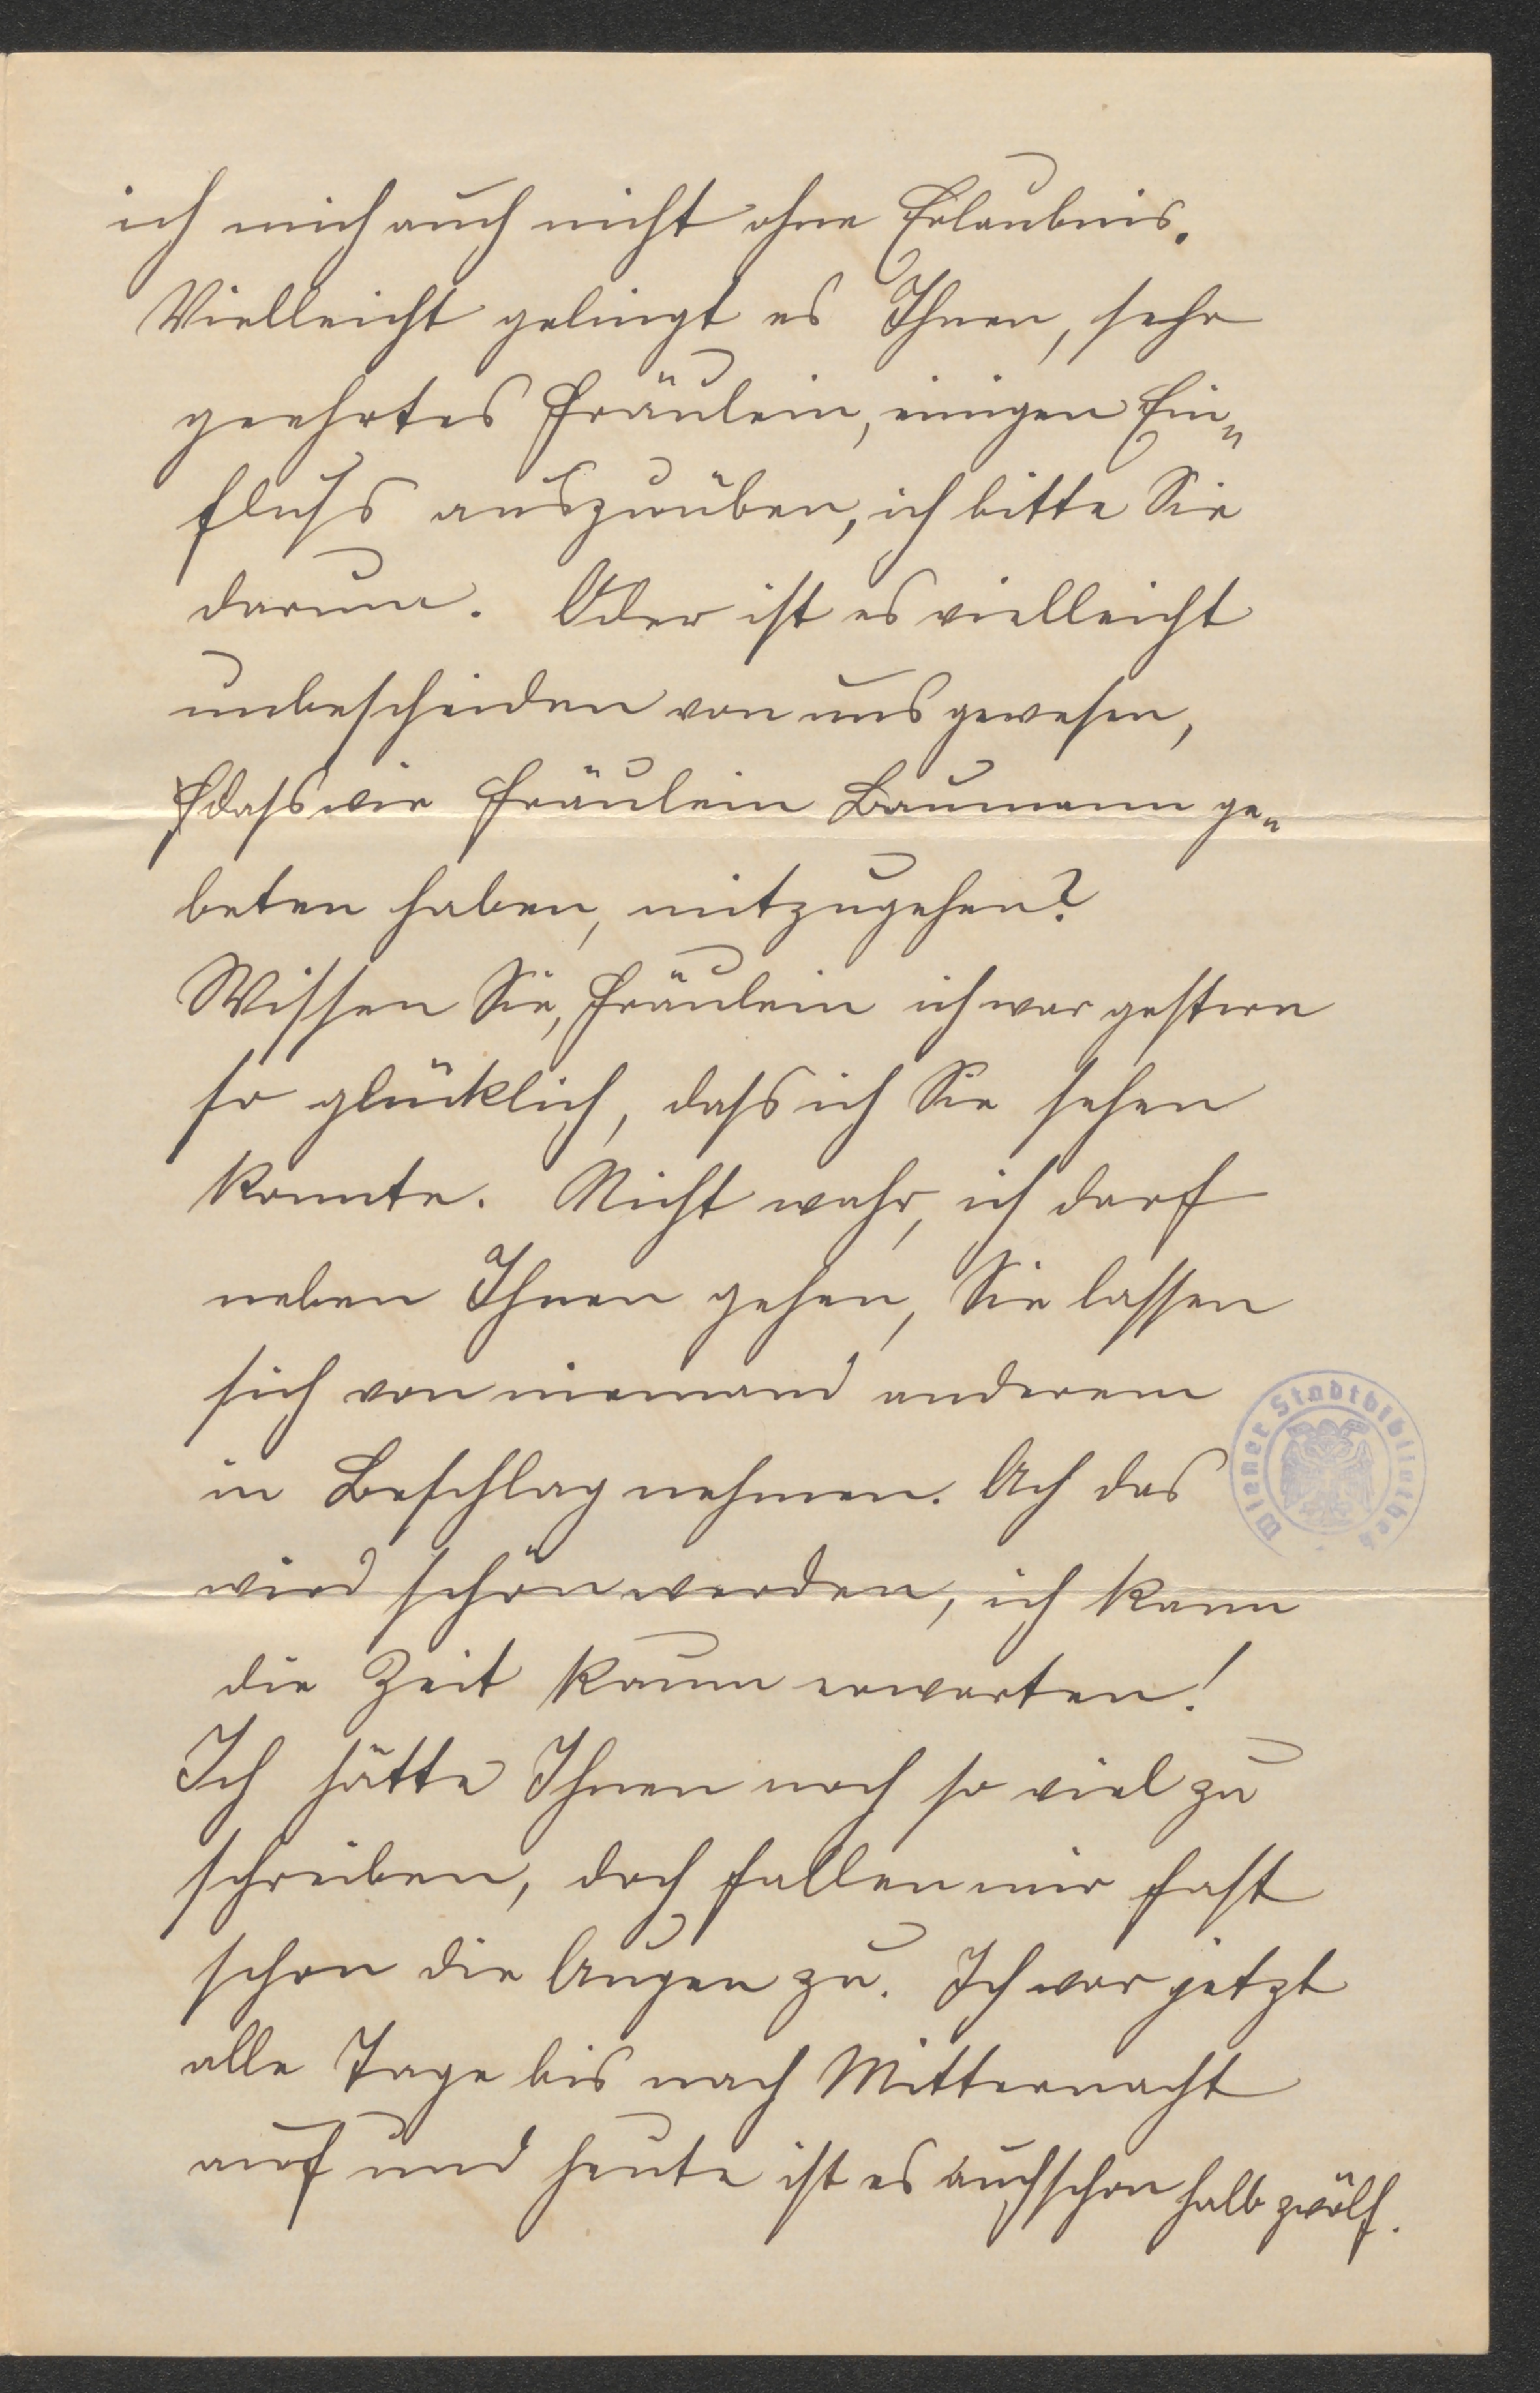 ich mich auch nicht ohne Erlaubnis.
Vielleicht gelingt es Ihnen, sehr
geehrtes Fräulein, einigen Ein=
fluss auszuüben, ich bitte Sie
darum. Oder ist es vielleicht
unbescheiden von uns gewesen,
dass wir Fräulein Baumann ge=
beten haben, mitzugehen?
Wissen Sie, Fräulein ich war gestern
so glücklich, dass ich Sie sehen
konnte. Nicht wahr, ich darf
neben Ihnen gehen, Sie lassen
sich von niemand anderem
in Beschlag nehmen. Ach das
wird schön werden, ich kann
die Zeit kaum erwarten!
Ich hätte Ihnen noch so viel zu
schreiben, doch fallen mir fast
schon die Augen zu. Ich war jetzt
alle Tage bis nach Mitternacht
auf und heute ist es auch schon halb zwölf.
Wiener Stadtbibliothek